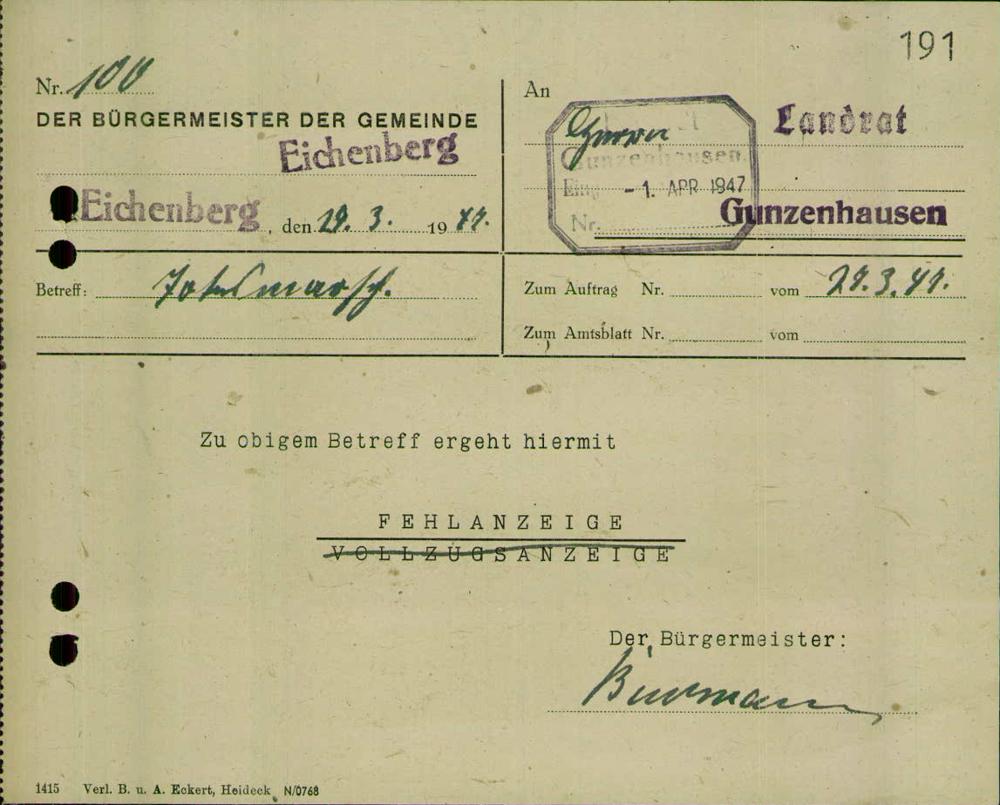 191
Nr. 100
DER BÜRGERMEISTER DER GEMEINDE
Eichenberg
Eichenberg, den 29. 3. 1947.
An
Herrn Landrat
Gunzenhausen
Eing. - 1. APR. 1947
Nr.
Gunzenhausen
Betreff: Todesmarsch.
Zum Auftrag Nr. vom 27.3.47.
Zum Amtsblatt Nr. vom
Zu obigem Betreff ergeht hiermit
FEHLANZEIGE
VOLLZUGSANZEIGE
Der Bürgermeister:
1415 Verl. B. u. A. Eckert, Heideck N/0768